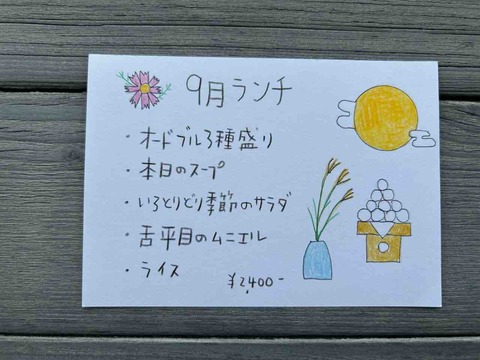 9月ランチ
・オードブル3種盛り
・本日のスープ
・いろとりどり季節のサラダ
・舌平目のムニエル
・ライス
¥2,400-